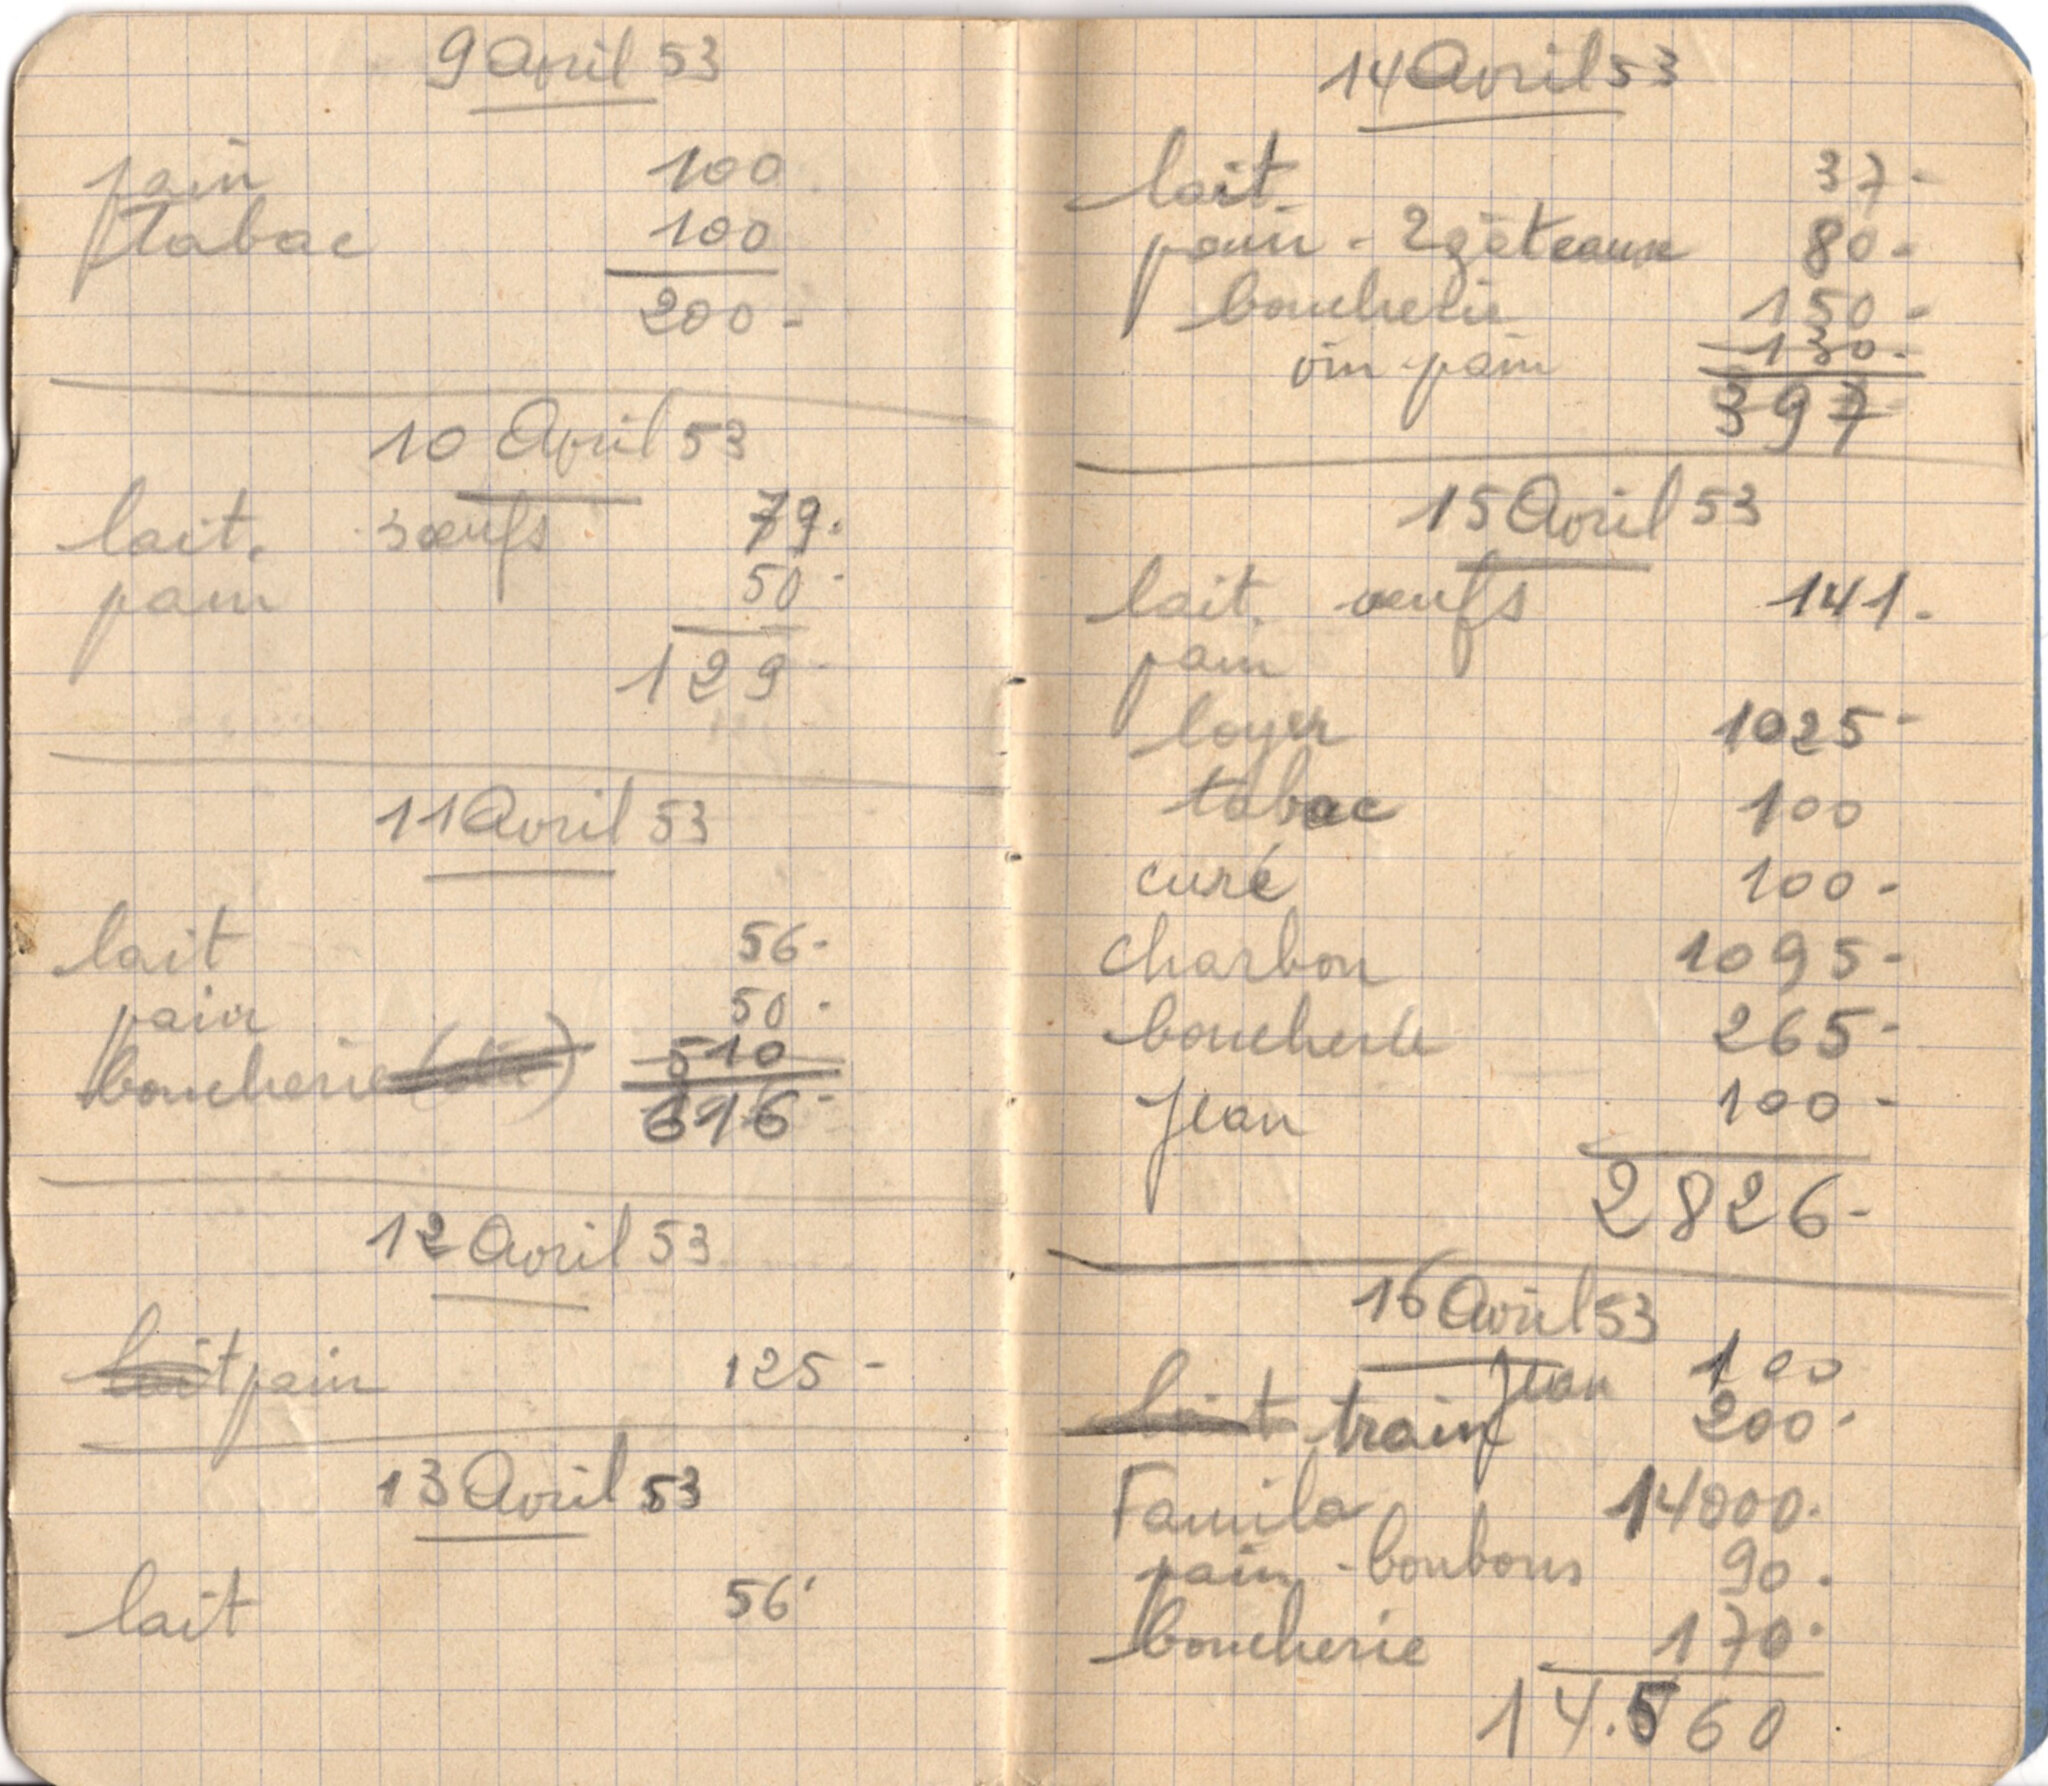 9 Avril 53
pain 100
tabac 100
200-
10 Avril 53
lait. 3 œufs 79.
pain 50-
129-
11 Avril 53
lait 56-
pain 50-
boucherie 510
616-
12 Avril 53
lait pain 125-
13 Avril 53
lait 56
14 Avril 53
lait. 37-
pain - 2 gâteaux 80-
boucherie 150-
vin pain 130.
397
15 Avril 53
lait. œufs 141.
pain
loyer 1025-
tabac 100
curé 100-
charbon 1095-
boucherie 265-
Jean 100-
2826-
16 Avril 53
Jean 100
lait train 200.
Famila 14000.
pain - bonbons 90.
boucherie 170.
14.560